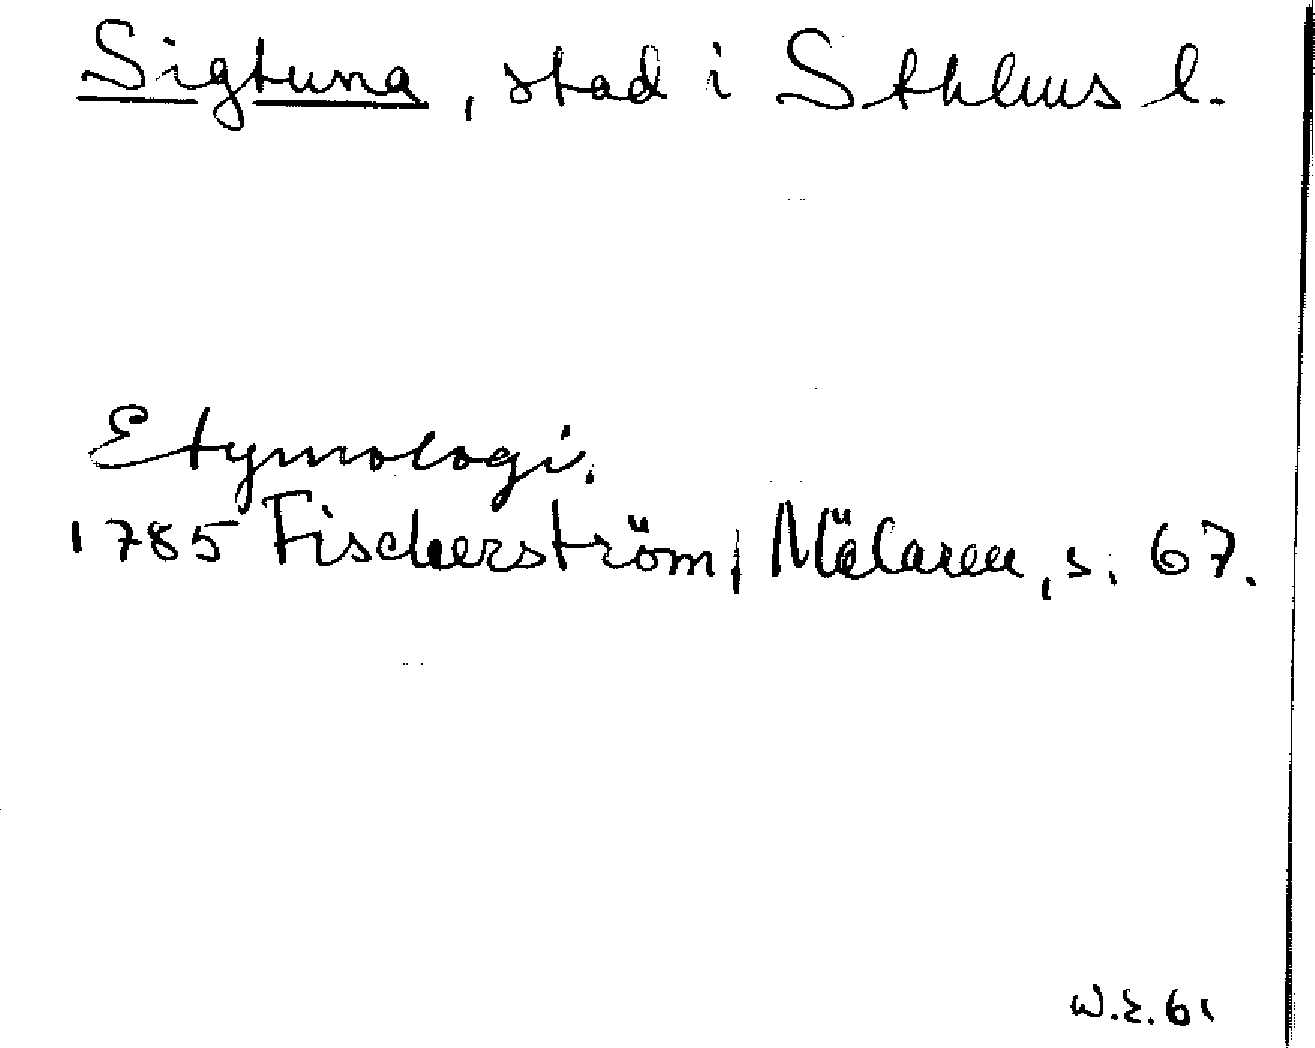 Sigtuna, stad i Sthlms l.
Etymologi.
1785 Fischerström, Mälaren, s. 67.
W.E. 61